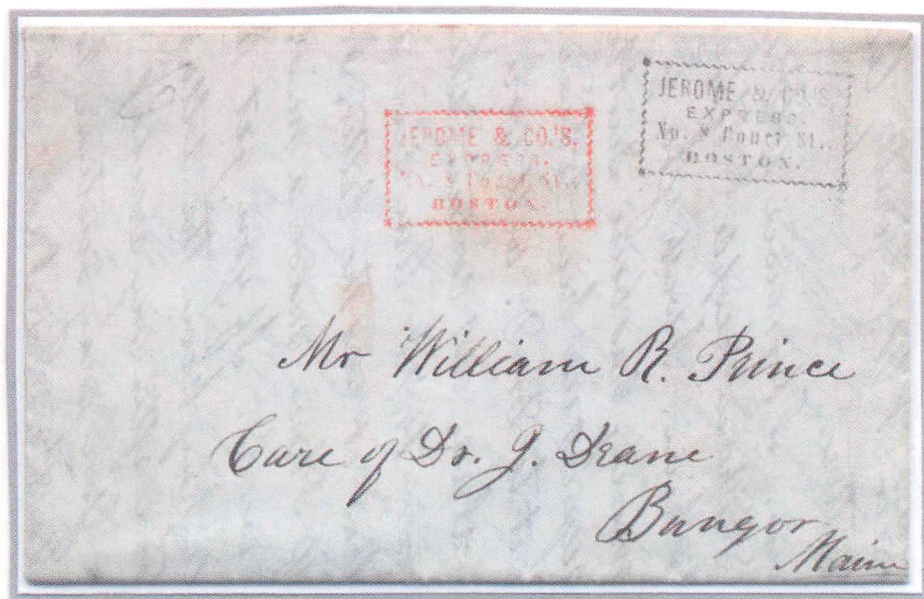 JEROME & CO.'S.
EXPRESS.
No. 8 Court St.,
BOSTON.
JEROME & CO.'S.
EXPRESS.
No. 8 Court St.,
BOSTON.
Mr William R. Prince
Care of Dr. J. Deane
Bangor
Maine